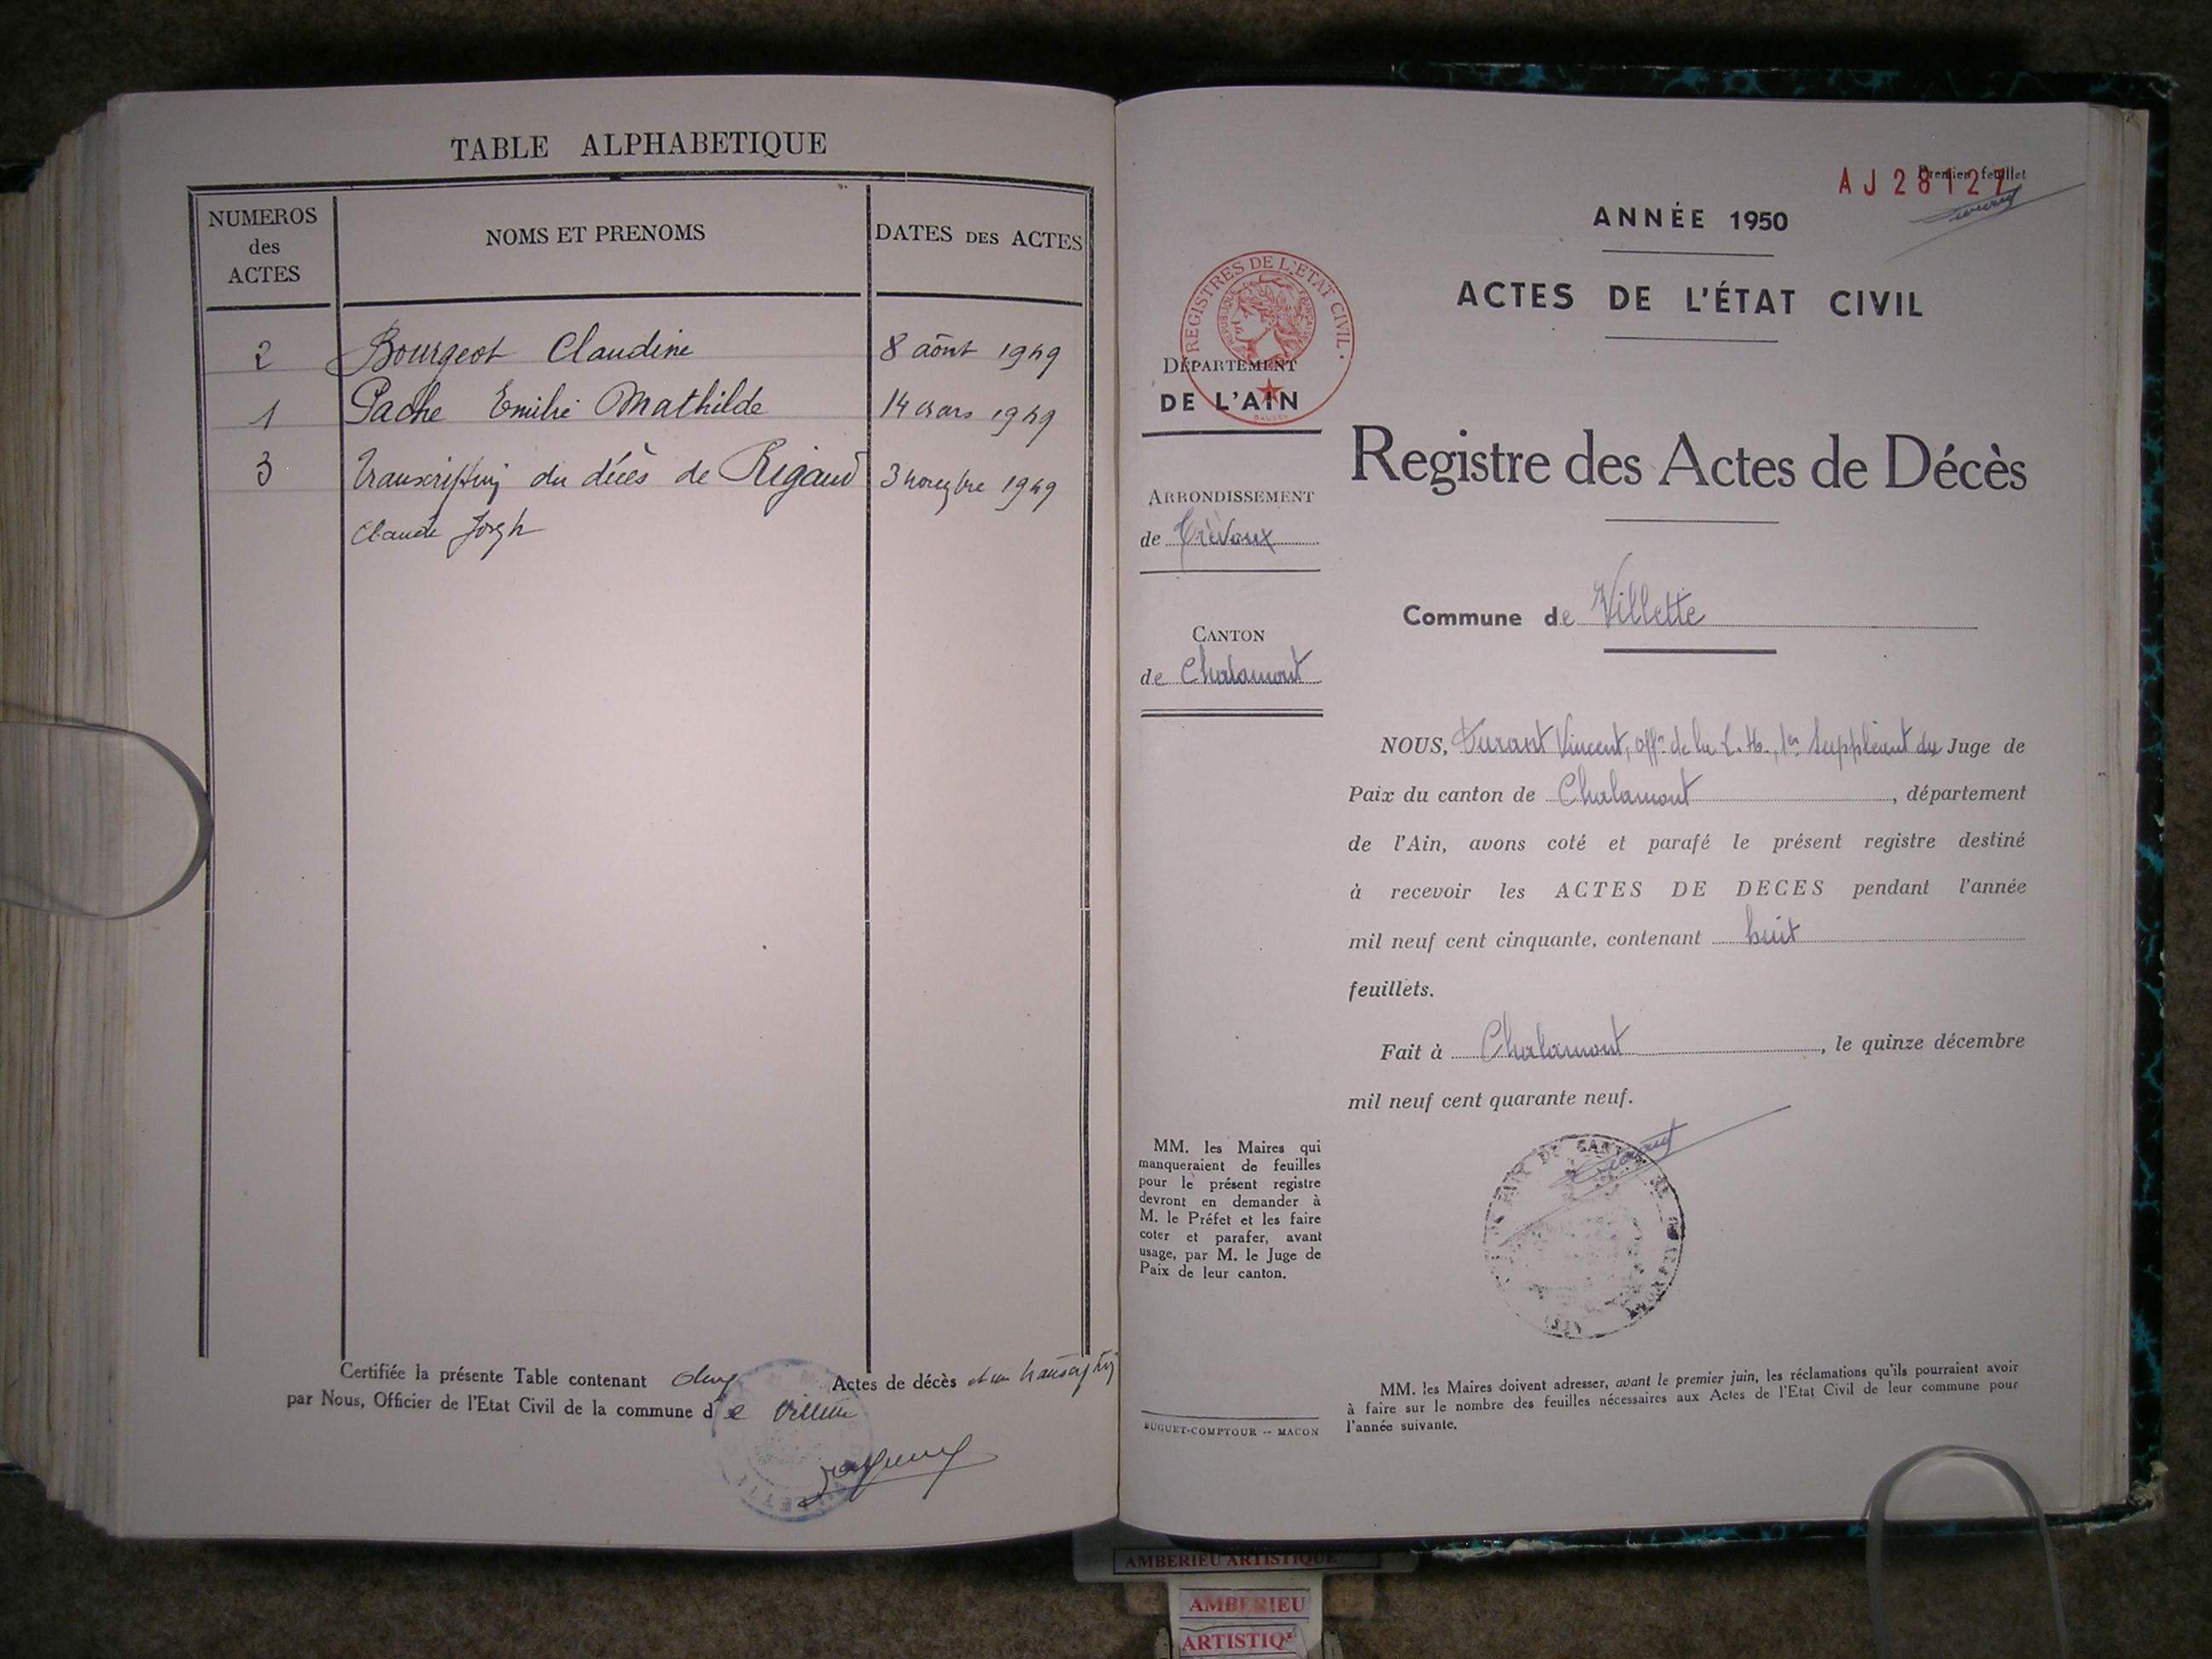 TABLE ALPHABETIQUE
NUMEROS
des
ACTES
NOMS ET PRENOMS
DATES DES ACTES
2 Bourgeot Claudine 8 août 1949
1 Pache Emilie Mathilde 14 mars 1949
3 Transcription du décès de Rigaud 3 novembre 1949
Claude Joseph
Certifiée la présente Table contenant deux Actes de décès et une transcription
par Nous, Officier de l'Etat Civil de la commune de Villette
AJ 28127
Premier feuillet
ANNÉE 1950
ACTES DE L'ÉTAT CIVIL
REGISTRES DE L'ETAT CIVIL
REPUBLIQUE FRANÇAISE
DÉPARTEMENT
DE L'AIN
Registre des Actes de Décès
ARRONDISSEMENT
de Trévoux
Commune de Villette
CANTON
de Chalamont
NOUS, Durant Vincent, offr de la L. H., 1er Suppléant du Juge de
Paix du canton de Chalamont, département
de l'Ain, avons coté et parafé le présent registre destiné
à recevoir les ACTES DE DECES pendant l'année
mil neuf cent cinquante, contenant huit
feuillets.
Fait à Chalamont, le quinze décembre
mil neuf cent quarante neuf.
MM. les Maires qui
manqueraient de feuilles
pour le présent registre
devront en demander à
M. le Préfet et les faire
coter et parafer, avant
usage, par M. le Juge de
Paix de leur canton.
BUGUET-COMPTOUR -- MACON
MM. les Maires doivent adresser, avant le premier juin, les réclamations qu'ils pourraient avoir
à faire sur le nombre des feuilles nécessaires aux Actes de l'Etat Civil de leur commune pour
l'année suivante.
AMBERIEU ARTISTIQUE
AMBERIEU
ARTISTIQ